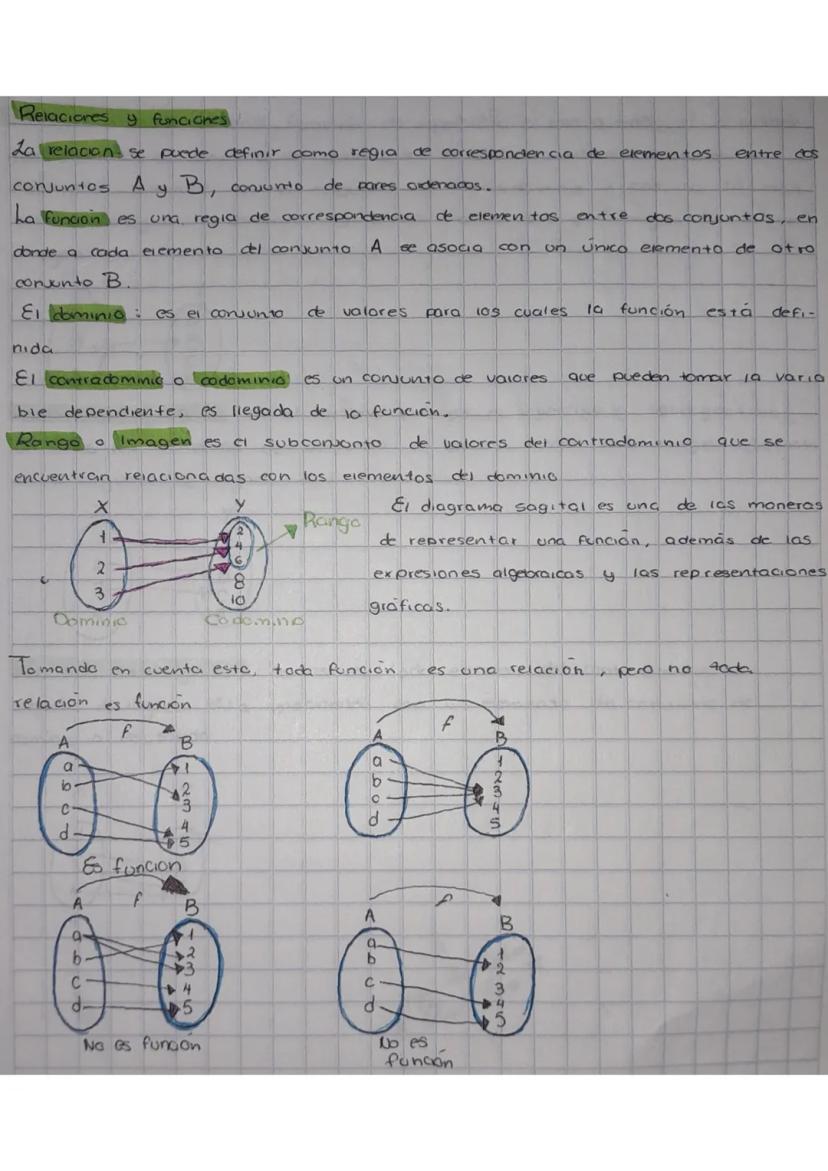 Relaciones y funciones
La relación se puede definir como regla de correspondencia de elementos entre dos
conjuntos A y B, conjunto de pares ordenados.
La función es una regla de correspondencia de elementos entre dos conjuntos, en
donde a cada elemento del conjunto A se asocia con un único elemento de otro
conjunto B.
El dominio : es el conjunto de valores para los cuales la función está defi-
nida
El contradominio o codominio es un conjunto de valores que pueden tomar la varia
ble dependiente, es llegada de la función.
Rango o Imagen es el subconjunto de valores del contradominio que se
encuentran relacionadas con los elementos del dominio
X Y
Rango
1 2
4
2 6
8
3 10
Dominio Codominio
El diagrama sagital es una de las maneras
de representar una función, además de las
expresiones algebraicas y las representaciones
gráficas.
Tomando en cuenta esto, toda función es una relación, pero no toda
relación es función
f
A B
a 1
b 2
3
c 4
d 5
Es función
f
A B
a 1
b 2
c 3
d 4
5
f
A B
a 1
b 2
3
c 4
d 5
No es función
f
A B
a 1
b 2
c 3
4
d 5
No es
función